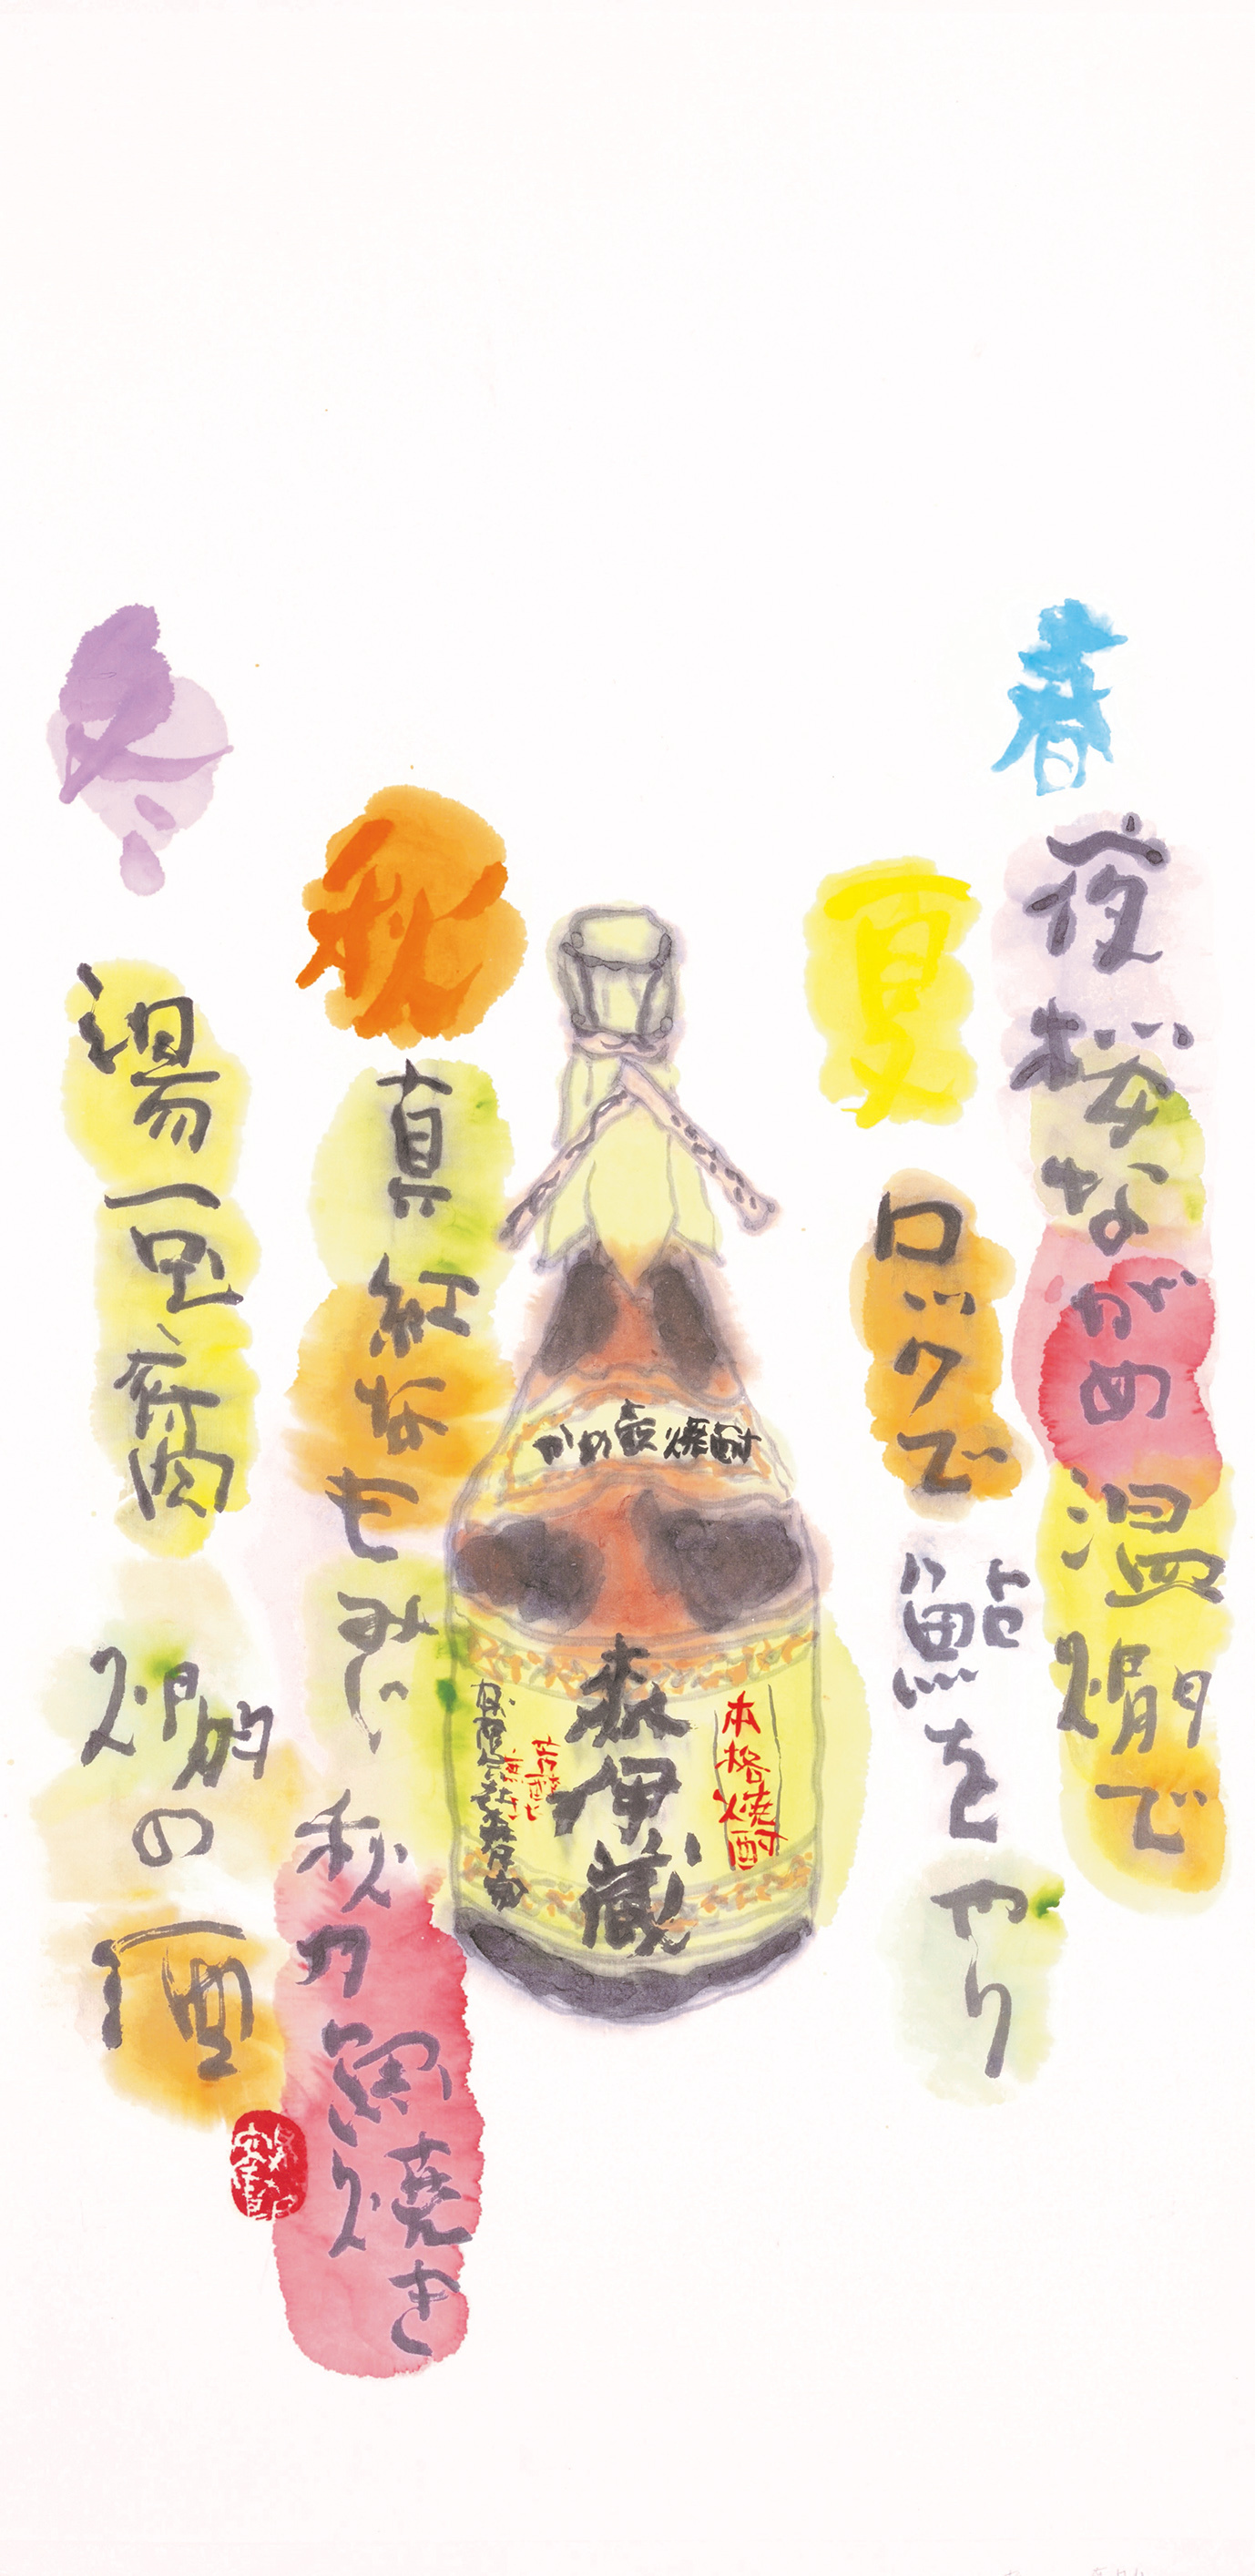 春
夜桜ながめ 温燗で
夏
ロックで 鮎をやり
かめ壺焼酎
本格焼酎
森伊蔵
秋
真紅なもみじ 秋刀魚焼き
冬
湯豆腐 燗の酒